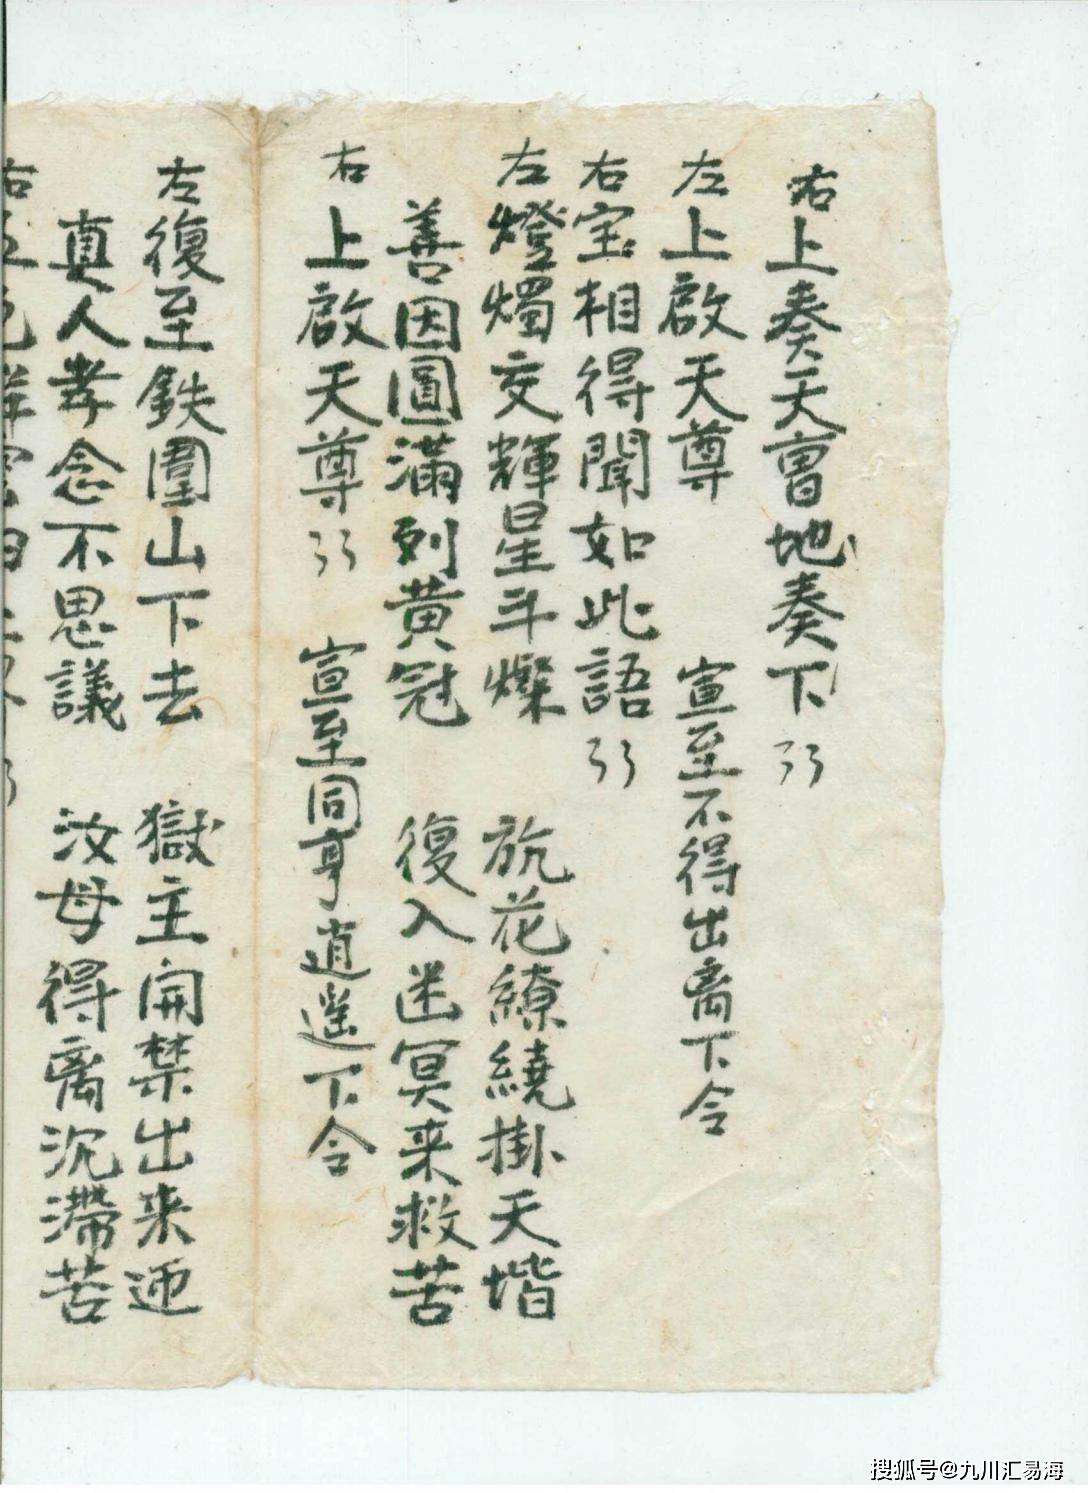 右上奏天曹地奏下
左上啟天尊 宣至不得出离下令
右宝相得聞如此語
左燈燭交輝星斗燦 旂花繚繞掛天堦
善因圓滿列黄冠 復入迷冥来救苦
右上啟天尊 宣至同享逍遥下令
左復至鉄圍山下去 獄主開禁出来迊
真人孝念不思議 汝母得离沉滯苦
搜狐号@九川汇易海